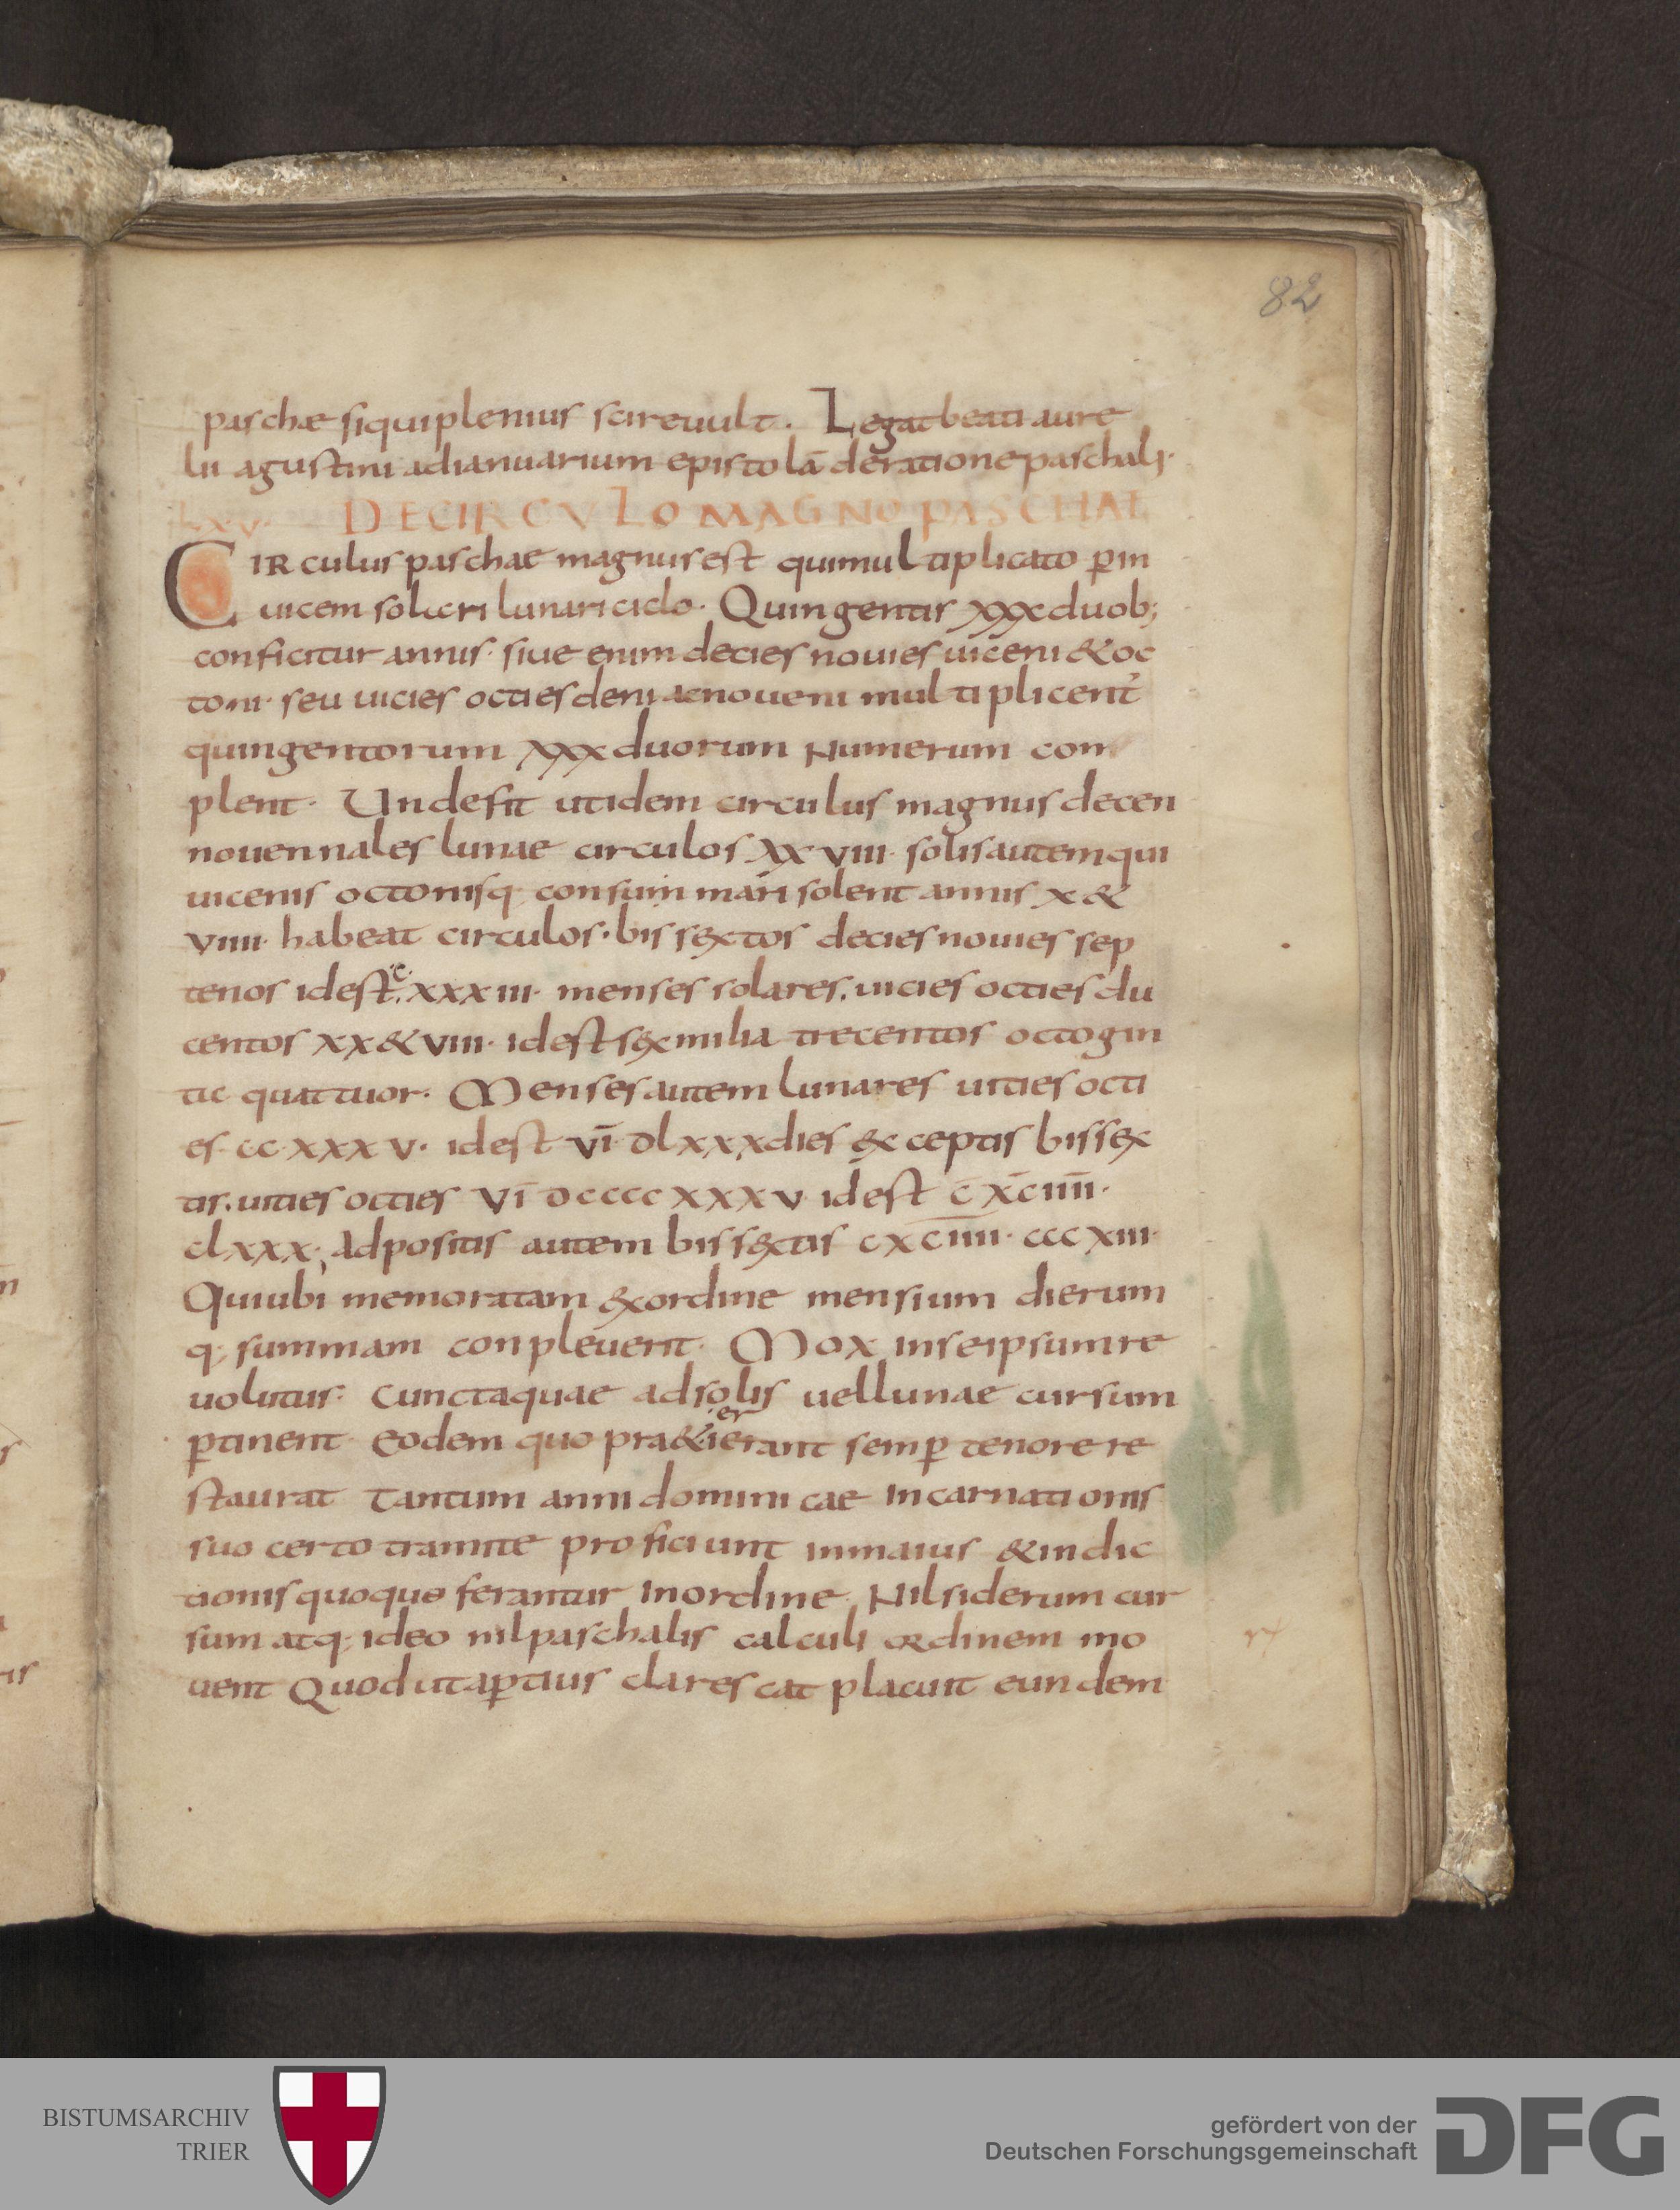 82
paschae siquiplenius scireuult. Legat beati aure
lii agustini adianuarium epistolā deratione paschali.
lxv. DECIRCVLO MAGNO PASCHAE
CIRculus paschae magnus est quimultiplicato p̲in
uicem solicri lunari ciclo. Quingentis xxx duob;
conficitur annis. siue enim decies nouies uiceni & oc
toni. seu uicies octies deni acnoueni multiplicent̉
quingentorum xxx duorum Numerum com
plent. Undefit utidem circulus magnus decen
nouennales lunae circulos xxviii. solis autem qui
uicenis octonisq; consummari solent annis x &
viiii. habeat circulos. bissextos decies nouies sep
tenos idest c. xxxiii. menses solares. uicies octies du
centos xx & viii. idest sex milia trecentos octogin
tic quattuor. Menses autem lunares uities octi
es. cc. xxx v. idest vī. dlxxx dies exceptis bissex
tis. uities octies vī dcccc xxxv. idest c̄x̄c̄iiii.
clxxx. Adpositis autem bissextis cxc̄iiii. cccxiii.
Quiubi memoratam exordine mensium dierum
q; summam conpleuerit. Mox inseipsum re
uolutus. Cunctaquae adsolis uellunae cursum
p̲tinent. eodem quo pra&ierant semp̲ tenore re
er
staurat Tantum anni dominicae incarnationis
suo certo tramite proficiunt inmaius & indic
tionis quoque ferantur inordine. Nil siderum cur
sum atq; ideo nil paschalis calculi ordinem mo
uent Quod utap̲tius clarescat placuit eundem
BISTUMSARCHIV
TRIER
gefördert von der
Deutschen Forschungsgemeinschaft
DFG